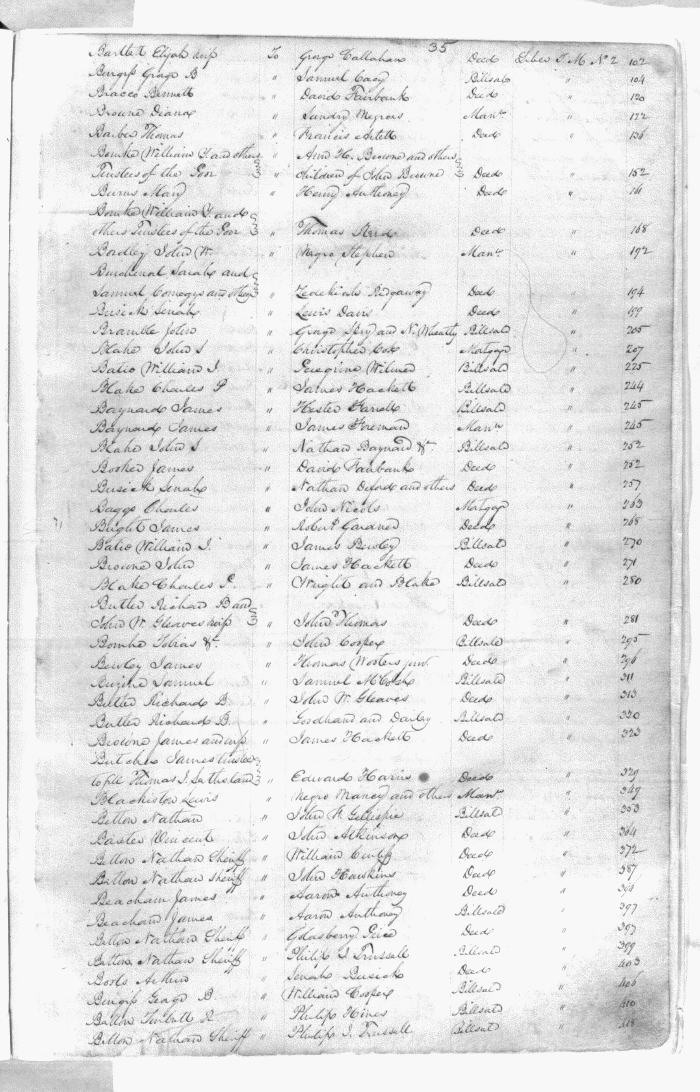 35
Bartlett Elijah wife To George Callahan Deed Liber T. M. No 2 102
George B " Samuel Billsale " 104
Bracco Bennett " David Fairbank Deed " 120
Browne Diana " Sundry Negroes Mann " 122
Barber Thomas " Francis Arlett Deed " 136
Bourke William Y. and others " Ann H. Browne and others
Trustees of the Poor Children of John Browne Deed " 152
Burns Mary " Henry Anthoney Deed " 161
Bourke William Y. and
others Trustees of the Poor " Thomas Deed " 168
Bordley John W. " Negro Stephen Mann " 192
Burchenal Sarah and
Samuel Comegys and others " Zedekiah Ridgaway Deed " 194
Busick Senah " Lewis Davis Deed " 199
Bramble John " George Spry and N. Wheatly Billsale " 205
Blake John S " Christopher Cox Matgage " 207
Batio William J. " Peregrine Wilmer Billsale " 225
Blake Charles P " James Hackett Billsale " 244
Baynard James " Hester Billsale " 245
Baynard James " James Foreman Mann " 245
Blake John S " Nathan Baynard &c. Billsale " 252
Booker James " David Fairbank Deed " 252
Busick Senah " Nathan and others Deed " 257
Baggs Charles " John Nicols Matgage " 263
Bright James " Robert Gardner Deed " 268
Batio William J. " James Billsale " 270
Browne John " James Hackett Deed " 271
Blake Charles P. " Wright and Blake Billsale " 280
Butler Richard B and
John W. Gleaves wife " John Thomas Deed " 281
Bourke Tobias &c. " John Cooper Billsale " 295
James " Thomas Wooters junr. Deed " 296
Samuel " Samuel Billsale " 311
Butler Richard B. " John W. Gleaves Deed " 313
Butler Richard B. " Goodhand and Darley Billsale " 330
Browne James and wife " James Hackett Deed " 323
Butcher James trustee
to sell Thomas J. Sutherland " Edward Harris Deed " 329
Blackiston Lewis " Negro and others Mann " 349
Betton Nathan " John W. Gillespie Billsale " 353
Baxter Vincent " John Atkinson Deed " 364
Betton Nathan Sheriff " William Deed " 372
Betton Nathan Sheriff " John Hawkins Deed " 387
Beacham James " Aaron Anthoney Deed "
Beacham James " Aaron Anthoney Billsale " 397
Betton Nathan Sheriff " Goldsberry Price Deed " 397
Betton Nathan Sheriff " Philip J. Trussell Billsale " 399
Arthur " Senah Busick Deed " 403
George B. " William Cooper Billsale " 406
Turbutt R " Philip Hines Billsale " 410
Betton Nathan Sheriff " Philip J. Trussell Billsale " 418